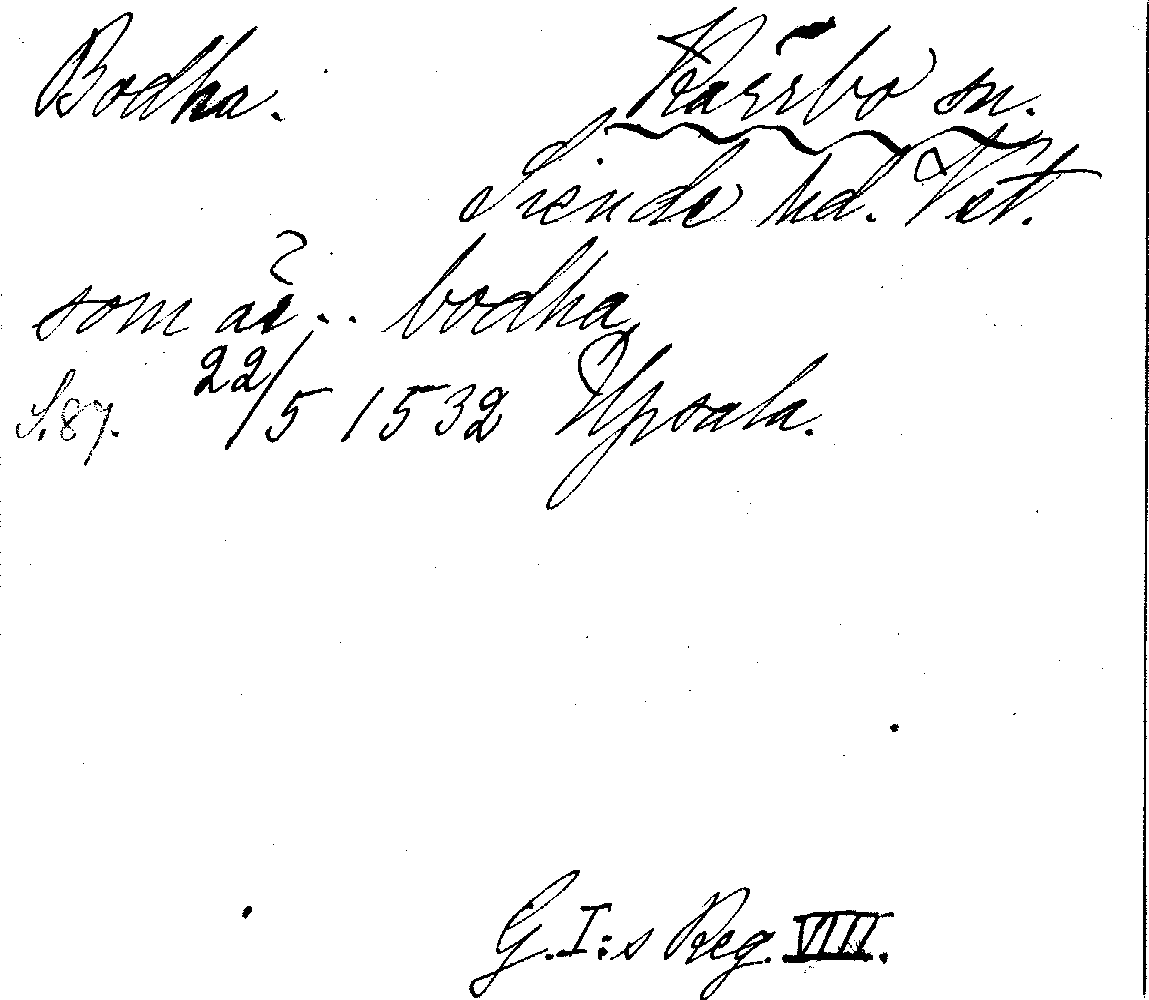 Bodha. Kärrbo sn.
Siende hd. Vst.
som är .. bodha
S. 87. 22/5 1532 Upsala.
G. I:s Reg. VIII.